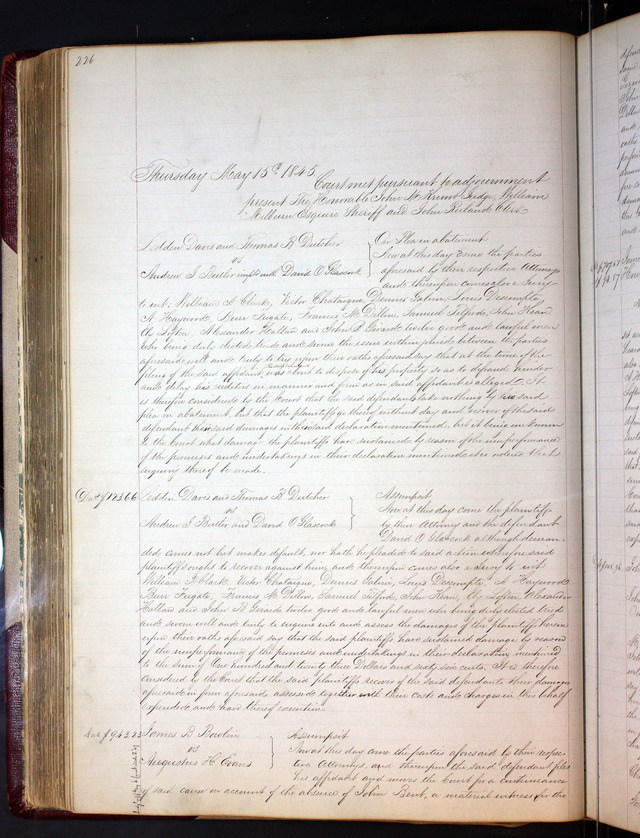 226
Thursday May 15th 1845.
Court met pursuant to adjournment
present The Honorable John M Krum Judge, William
Milburn Esquire Sheriff and John Ruland Clerk
Sedden Davis and Thomas B Dutcher
vs
Andrew J Butler David O Glascock
On Plea in abatement
Now at this day come the parties
aforesaid by their respective Attorneys
and thereupon comes also a Jury
to wit, William Clark, Victor Chataigne, Dennis Galvin, Louis
A Haywood, Burr Fugate, Francis M Dillon, Samuel Telford, John Kean
Lofton, Alexander Hallam and John B Girard twelve good and lawful men
who being duly elected tried and sworn the issue within joined between the parties
aforesaid well and truly to try upon their oaths aforesaid say that at the time of the
filing of the said affidavit, was about to dispose of his property so as to defraud hinder
and delay his creditors in manner and form as in said affidavit is alleged. It
is therefore considered by the Court that the said defendant take nothing by his said
plea in abatement, but that the plaintiffs go thereof without day and recover of the said
defendant their said damages in their said declaration mentioned. but it being unknown
to the Court what damage the plaintiffs have sustained by reason of the nonperformance
of the promises and undertakings in their declaration mentioned it is ordered that
inquiry thereof be made.
123.66
Sedden Davis and Thomas B Dutcher
vs
Andrew J Butler and David O Glascock
Assumpsit
Now at this day come the plaintiffs
by their Attorney and the defendant
David O Glascock although deman-
ded comes not but makes default, nor hath he pleaded to said action wherefore said
plaintiffs ought to recover against him, and thereupon comes also a Jury to wit
William Clark, Victor Chataigne, Dennis Galvin, Louis A Haywood
Burr Fugate, Francis M Dillon, Samuel Telford, John Kean, Lofton, Alexander
Hallam and John B Girard twelve good and lawful men who being duly elected tried
and sworn well and truly to inquire into and assess the damages of the plaintiffs herein
upon their oaths aforesaid say that the said plaintiffs have sustained damage by reason
of the nonperformance of the promises and undertakings in their declaration mentioned
to the sum of One hundred and twenty three Dollars and sixty six cents. It is therefore
considered by the Court that the said plaintiffs recover of the said defendants their damages
aforesaid in form aforesaid assessed together with their costs and charges in this behalf
expended and have thereof execution.
James B Bowlin
vs
Augustus H Evans
Assumpsit
Now at this day come the parties aforesaid by their respec-
tive Attorneys, and thereupon the said defendant files
his affidavit and moves the Court for a continuance
of said cause on account of the absence of John Bent, a material witness for the